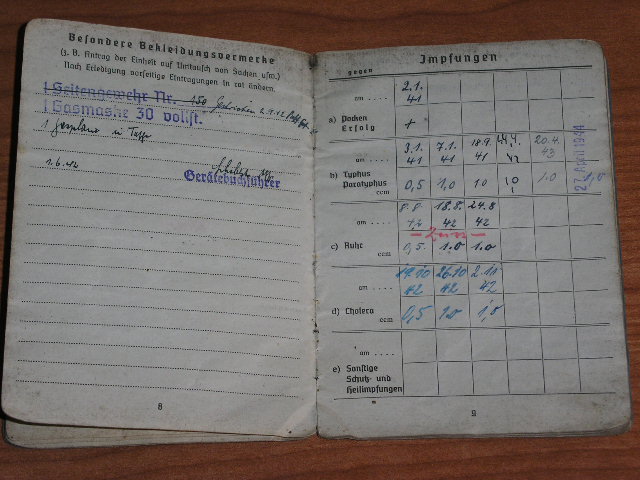 Besondere Bekleidungsvermerke
(z. B. Antrag der Einheit auf Umtausch von Sachen usw.)
Nach Erledigung vorseitige Eintragungen in rot ändern.
1 Seitengewehr Nr. 150
1 Gasmaske 30 vollst.
1
1.6.42
Gerätebuchführer
8
Impfungen
gegen
am . . . . 2.1. 41
a) Pocken
Erfolg +
am . . . . 3.1. 41 7.1. 41 18.9. 41 20.4. 43 2. April 1944
b) Typhus
Paratyphus
ccm 0,5 1,0 10 1.0 1,0
am . . . . 8.8. 42 18.8. 42 24.8 42
c) Ruhr
ccm 0,5. 1.0 1.0
am . . . . 19.10 42 26.10 42 2.11 42
d) Cholera
ccm 0,5 1.0 1,0
am . . . .
e) Sonstige
Schutz- und
Heilimpfungen
9